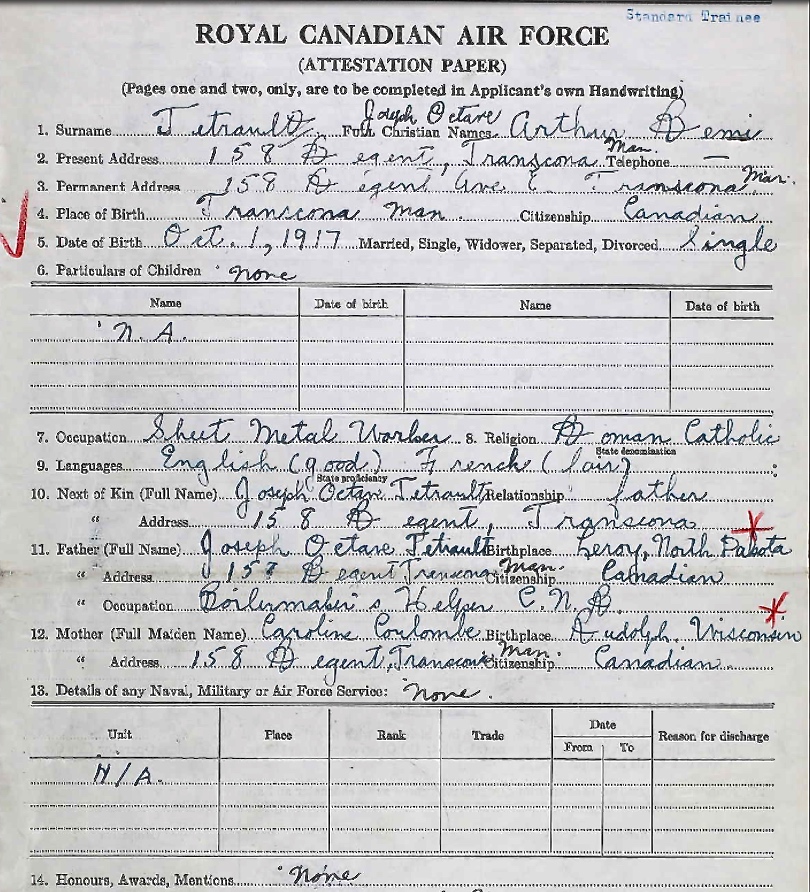 Standard Trainee
ROYAL CANADIAN AIR FORCE
(ATTESTATION PAPER)
(Pages one and two, only, are to be completed in Applicant's own Handwriting)
Joseph Octave
1. Surname Tetrault Full Christian Names Arthur Remi
2. Present Address 158 Regent, Transcona Man. Telephone —
3. Permanent Address 158 Regent Ave E. Transcona Man.
4. Place of Birth Transcona Man. Citizenship Canadian
5. Date of Birth Oct. 1, 1917 Married, Single, Widower, Separated, Divorced Single
6. Particulars of Children none
Name Date of birth Name Date of birth
N.A.
7. Occupation Sheet Metal Worker 8. Religion Roman Catholic
State denomination
9. Languages English (good) French (fair)
State proficiency
10. Next of Kin (Full Name) Joseph Octave Tetrault Relationship father
" Address 158 Regent, Transcona
11. Father (Full Name) Joseph Octave Tetrault Birthplace Leroy, North Dakota
" Address 158 Regent Transcona Man. Citizenship Canadian
" Occupation Boilermaker's Helper C.N.R.
12. Mother (Full Maiden Name) Caroline Coulombe Birthplace Rudolph, Wisconsin
" Address 158 Regent, Transcona Man. Citizenship Canadian
13. Details of any Naval, Military or Air Force Service: None.
Unit Place Rank Trade Date Reason for discharge
From To
N/A.
14. Honours, Awards, Mentions None